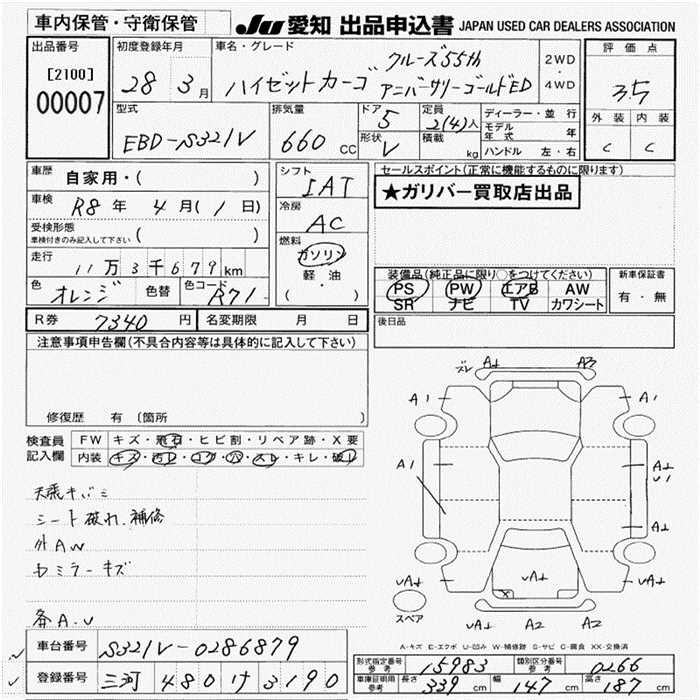 車内保管・守衛保管 JU 愛知 出品申込書 JAPAN USED CAR DEALERS ASSOCIATION
出品番号 [2100] 00007
初度登録年月 28年 3月
車名・グレード ハイゼットカーゴ クルーズ55th アニバーサリーゴールドED
2WD・4WD
評価点 3.5
外装 C 内装 C
型式 EBD-S321V
排気量 660 CC
ドア 5 形状 V
定員 2(4)人 積載 kg
ディーラー・並行
モデル年式 年
ハンドル 左・右
車歴 自家用・( )
車検 R8年 4月( 1 日)
受検形態 車検付きのみ記入して下さい ( )
走行 11万3千679km
色 オレンジ 色替 色コード R71
シフト IAT
冷房 AC
燃料 ガソリン 軽・油 ( ・ )
セールスポイント(正常に機能するものに限ります)
★ガリバー買取店出品
装備品(純正品に限り○をつけてください)
PS PW エアB AW
SR ナビ TV カワシート
新車保証書 有・無
後日品
R券 7340円 名変期限 月 日
注意事項申告欄(不具合内容等は具体的に記入して下さい)
修復歴 有 〔箇所 〕
検査員記入欄
FW キズ・飛石・ヒビ割・リペア跡・X要
内装 キズ・汚レ・コゲ・穴・スレ・キレ・破レ
天張キバミ
シート破れ、補修
外AW
ミラーキズ
各A.U
ズレ A A3
A1 A1
A1 A
U1
A
UA UA UA
X
UA A2 A2
スペア
A-キズ E-エクボ U-凹み W-補修跡 S-サビ C-腐食 XX-交換済
車台番号 S321V-0286879
登録番号 三河 480 け 3190
形式指定番号 参考 15983 類別区分番号 参考 0266
車庫証明用 参考 長さ 339 cm 幅 147 cm 高さ 187 cm